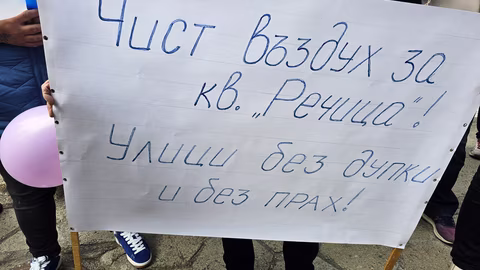 Чист въздух за
кв. „Речица“!
Улици без дупки
и без прах!